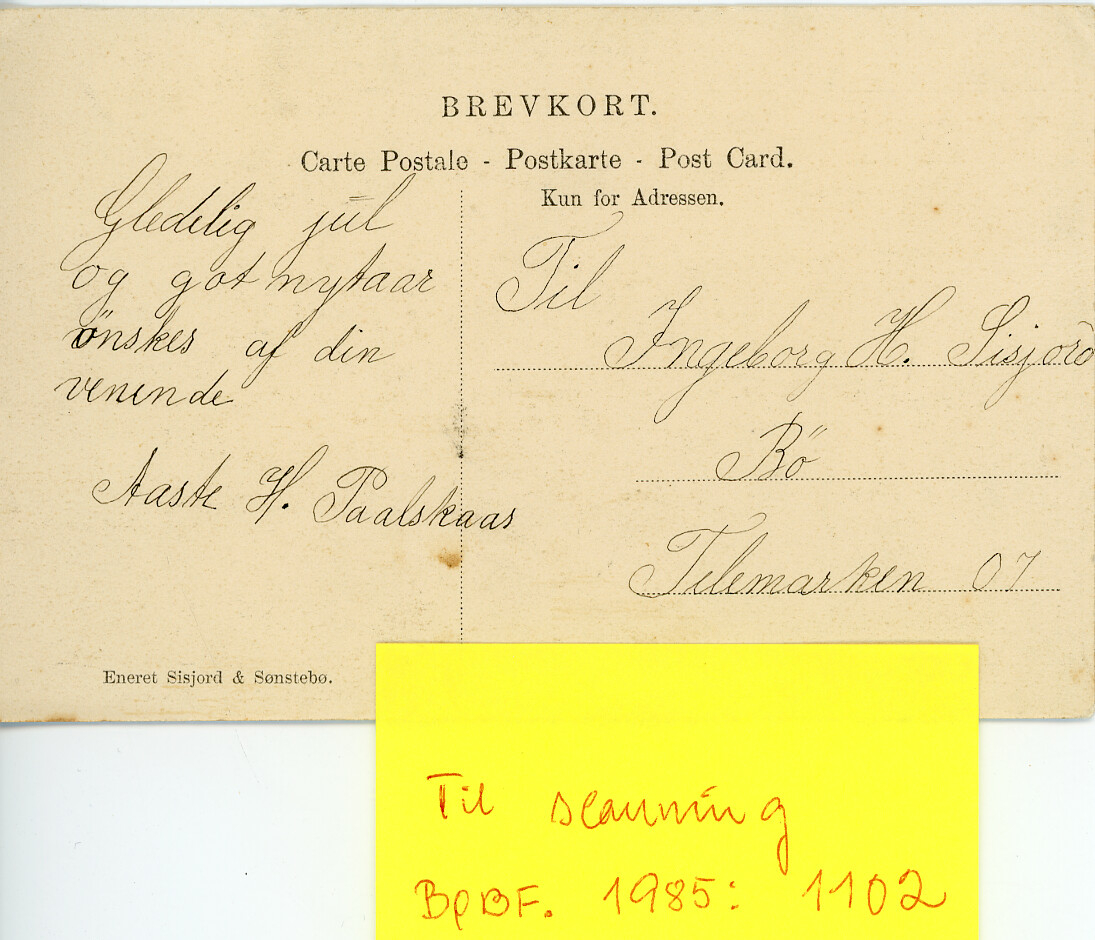 BREVKORT.
Carte Postale - Postkarte - Post Card.
Kun for Adressen.
Gledelig jul
og got nytaar
önskes af din
venende
Aaste H. Paalskaas
Til
Ingeborg H. Sisjord
Bö
Telemarken 07
Eneret Sisjord & Sønstebø.
Til scanning
BøBF. 1985: 1102